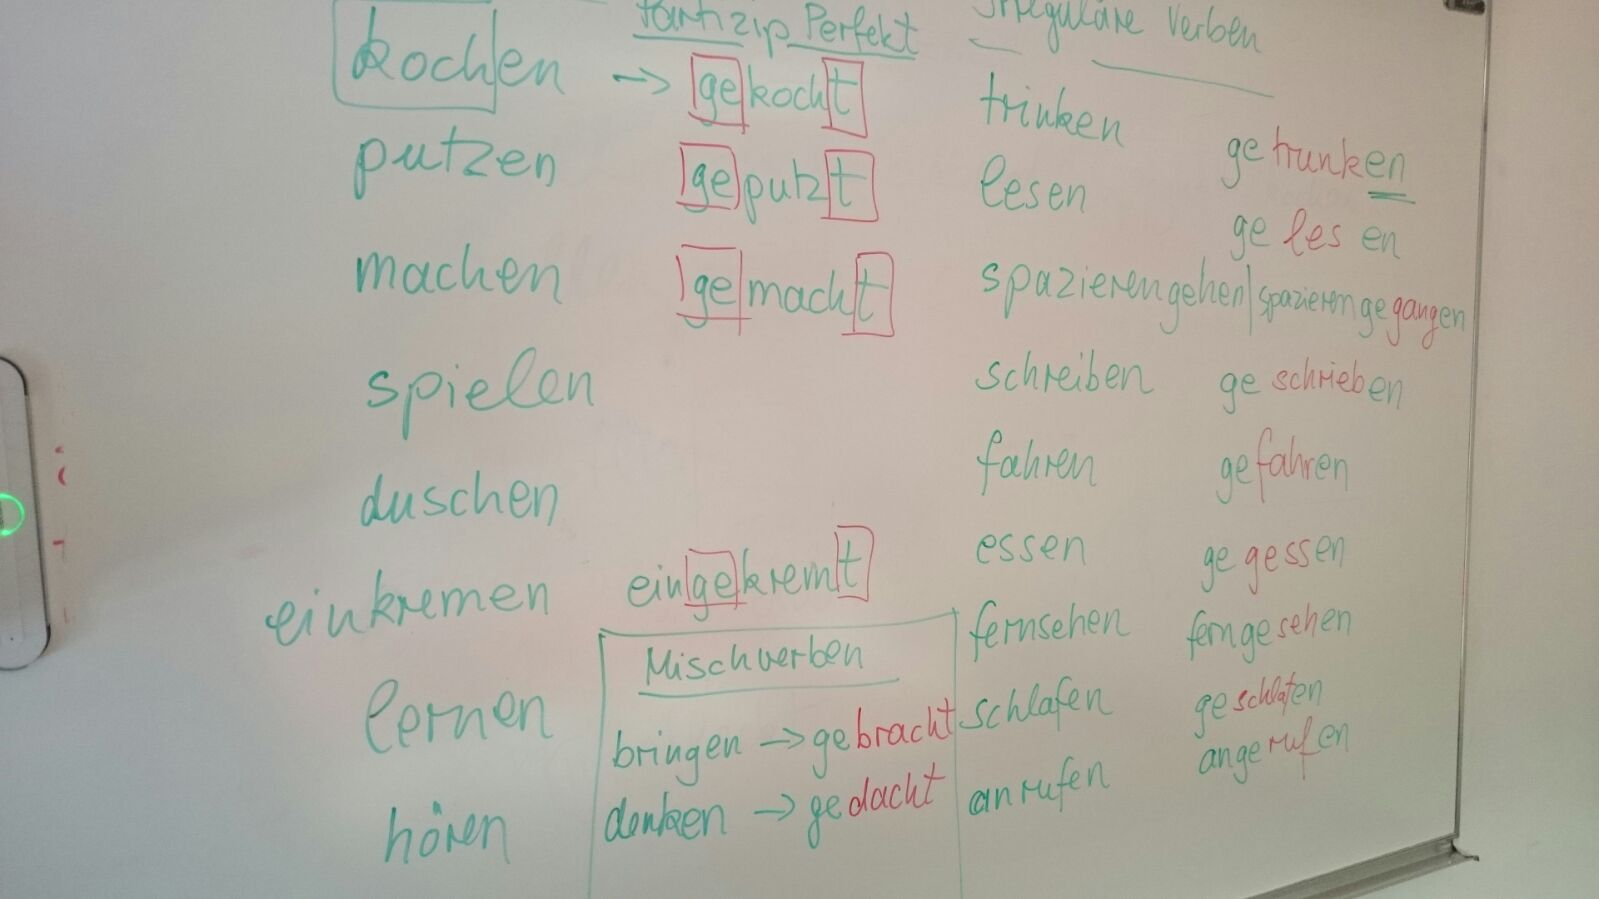 Partizip Perfekt
Irreguläre Verben
kochen → gekocht
putzen geputzt
machen gemacht
spielen
duschen
einkremen eingekremt
lernen
hören
Mischverben
bringen → gebracht
denken → gedacht
trinken getrunken
lesen ge les en
spazierengehen | spazierengegangen
schreiben geschrieben
fahren gefahren
essen gegessen
fernsehen ferngesehen
schlafen geschlafen
anrufen angerufen